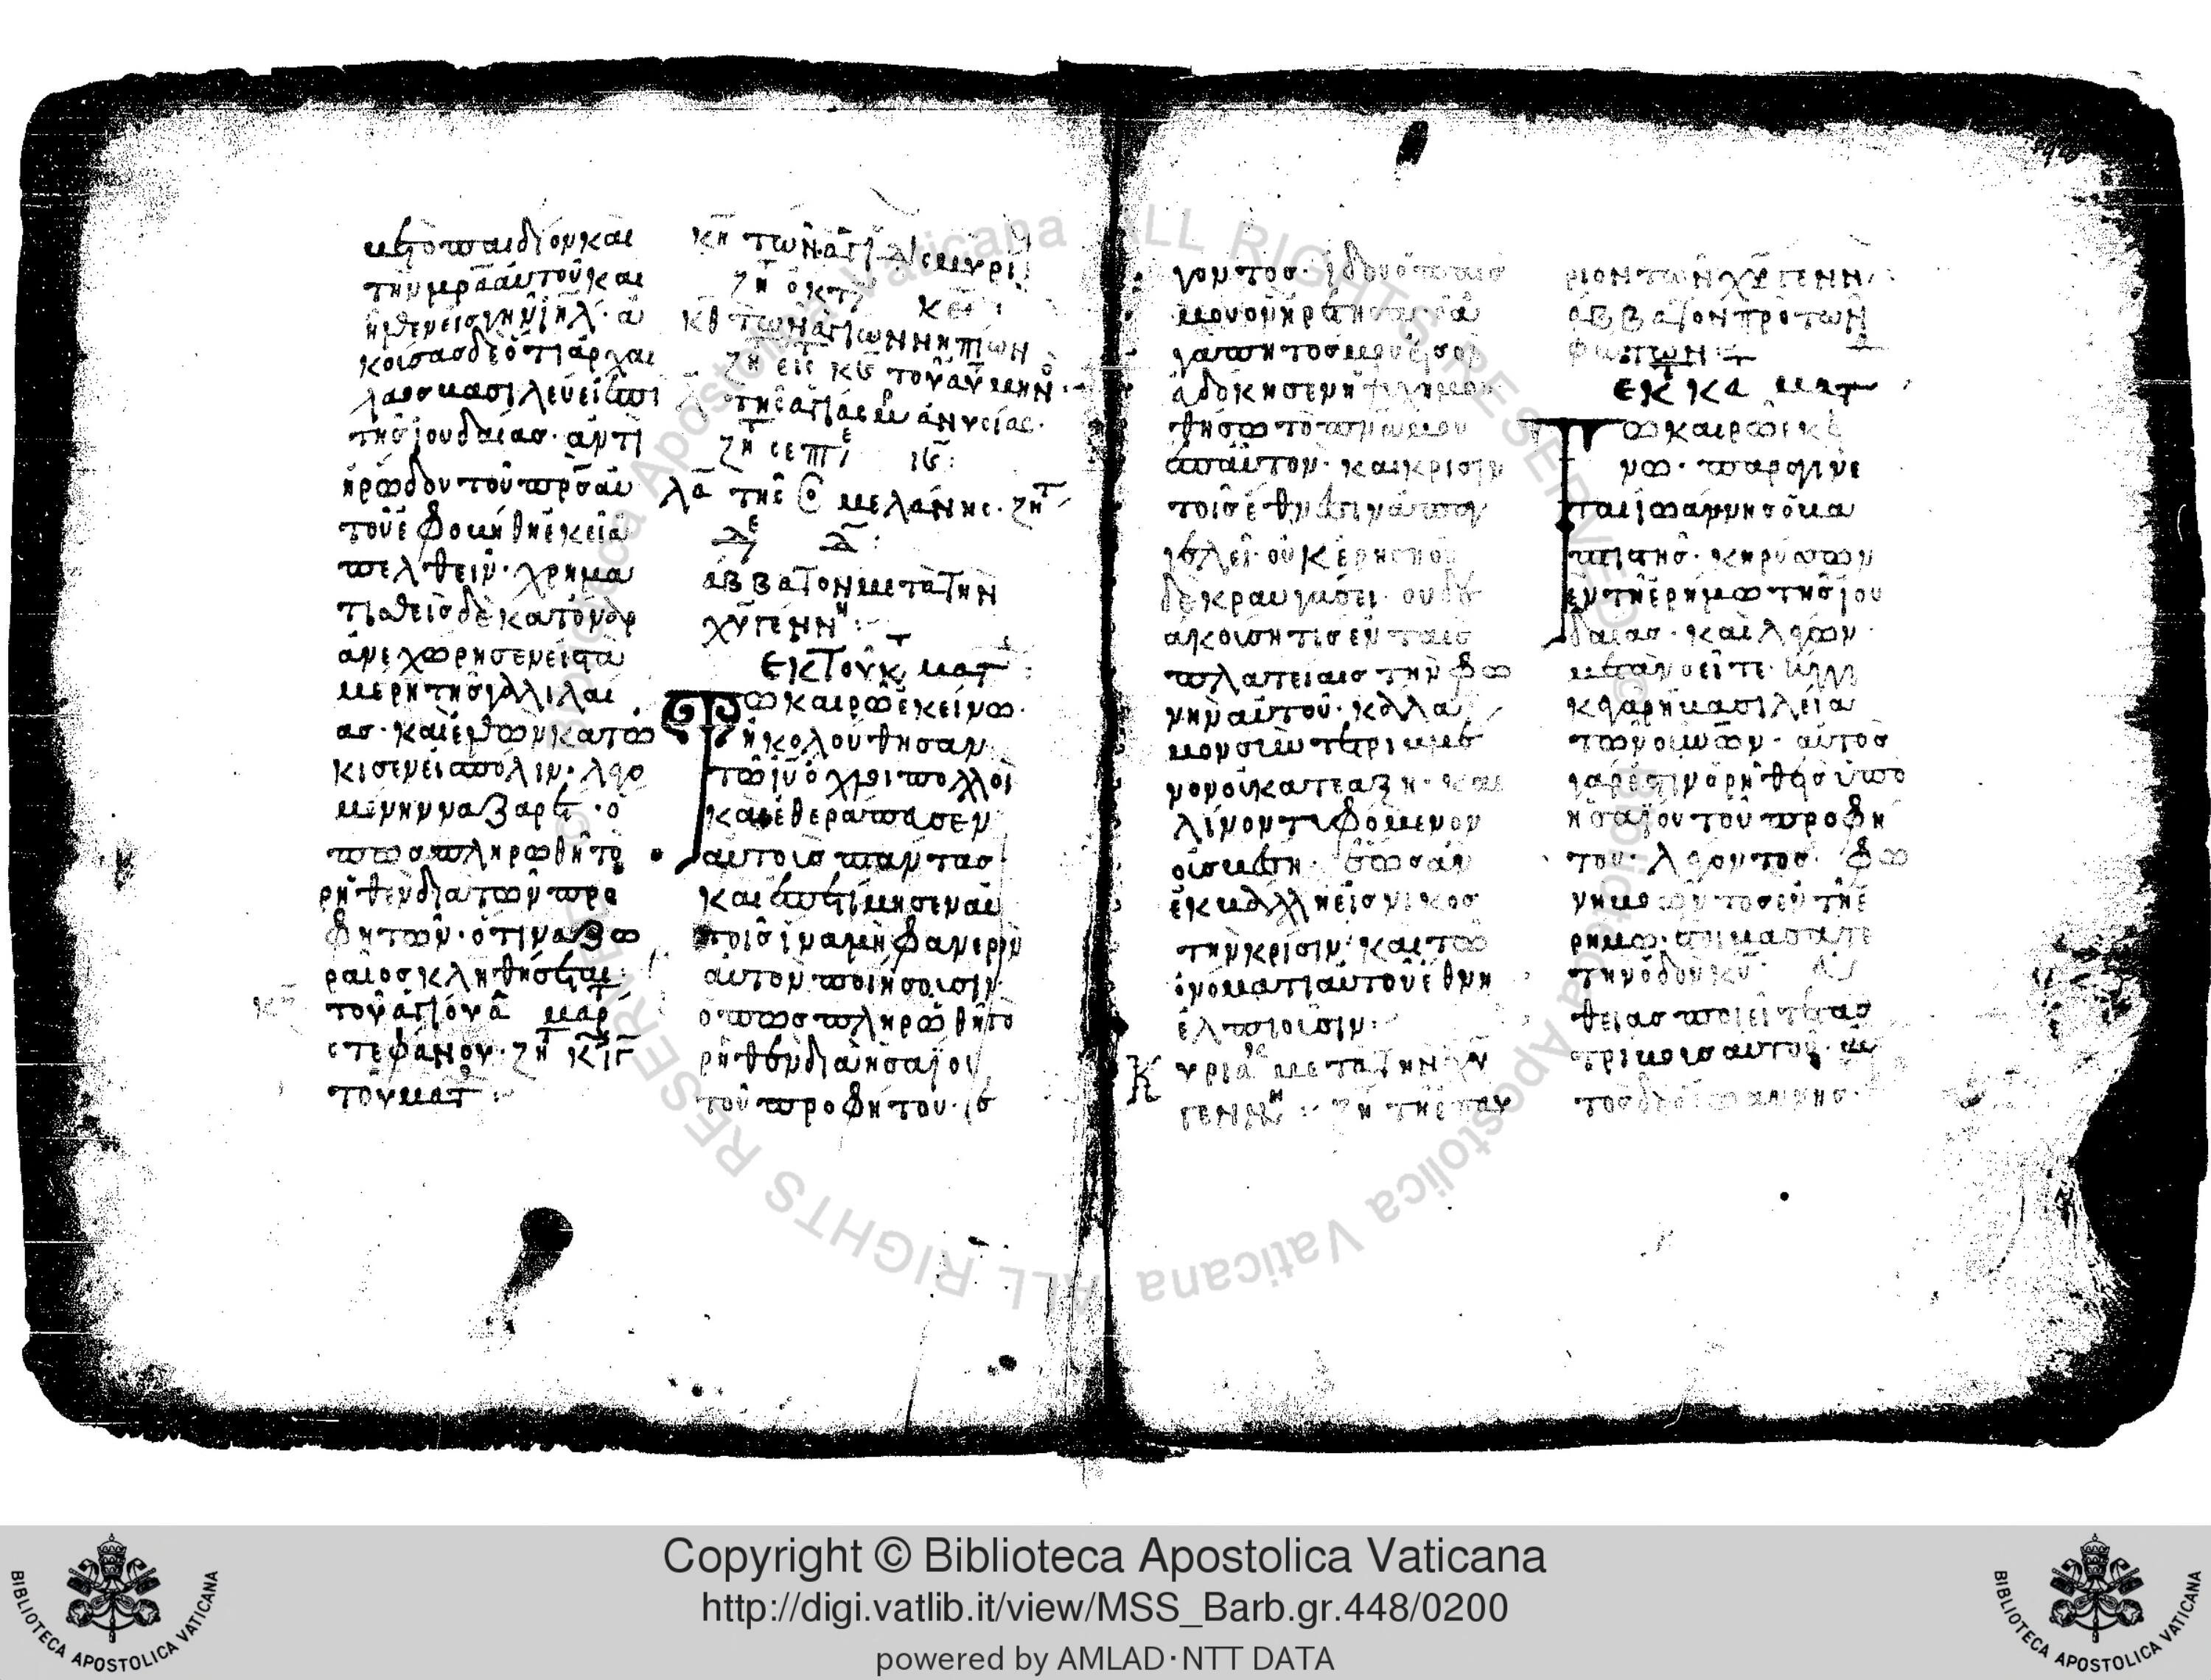 τὸ παιδίον καὶ
τὴν μρ̅α αὐτοῦ καὶ
ἦλθεν εἰς γῆν ἰη̅λ· ἀ
κούσας δὲ ὅτι ἀρχαι
λαος βασιλεύει ἐπὶ
τῆς ἰουδαίας· ἀντὶ
ἡρώδου τοῦ πρ̅σ αὐ
τοῦ ἐφοβήθη ἐκεῖ ἀ
πελθεῖν· χρημα
τισθεὶς δὲ κατ' ὄναρ
ἀνεχώρησεν εἰς τὰ
μέρη τῆς γαλιλαί
ας· καὶ ἐλθὼν κατώ
κισεν εἰς πόλιν· λεγο
μένην ναζαρετ· ὅ
πως πληρωθῆ τὸ
ρηθὲν διὰ τῶν προ
φητῶν· ὅτι ναζω
ραῖος κληθήσεται:
τοῦ ἁγίου ἀ μαρ
στεφάνου· ζητ κυ γ
τοῦ ματθ
ζητ ὀκτ
κθ τῶν ἁγίων νηπίων
ζητ εἰς κϛ τοῦ αὐ μην
λ τῆς ἁγίας ἀνυσίας·
ζητ σεπτε ιϛ:
λα τῆς ὁ μελάνης· ζητ
δε λ:
αββατον μετὰ τὴν
χυ̅ γενν:
ἐκ τοῦ κ ματ
Τῶ καιρῶ ἐκείνω·
ἠκολούθησαν
τῶ ιυ̅ ὄχλοι πολλοὶ
καὶ ἐθεράπευσεν
αὐτοὺς πάντας·
καὶ ἐπετίμησεν αὐ
τοῖς ἵνα μὴ φανερὸν
αὐτὸν ποιήσουσιν·
ὅπως πληρωθῆ τὸ
ρηθὲν διὰ ἡσαΐου
τοῦ προφήτου· λέ
γοντος· ἰδοὺ ὁ παῖς
μου ὃν ἡρέτησα· ὁ ἀ
γαπητός μου εἰς ὃν
ἀδόκησεν ἡ ψυχή μου
θήσω τὸ πνεῦμά μου
ἐπ' αὐτόν· καὶ κρίσιν
τοῖς ἔθνεσιν ἀπαγ
γελεῖ· οὐκ ἐρήσει οὐ
δὲ κραυγάσει· οὐδὲ
ἀκούση τις ἐν ταῖς
πλατείαις τὴν φω
νὴν αὐτοῦ· κάλα
μον συντετριμμέ
νον οὐ κατεάξη· καὶ
λίνον τυφόμενον
οὐ σβέση· ἕως ἂν
ἐκβάλλη εἰς νίκος
τὴν κρίσιν· καὶ τῶ
ὀνόματι αὐτοῦ ἔθνη
ἐλπιοῦσιν:
Κυρια μετὰ τὴν χυ̅
γενν: ζη τῆς παρ
ριον τῶν χυ̅ γενν
αββατον πρὸ τῶν
φωτων
ἐκ κα ματ
Τῶ καιρῶ ἐκεί
νω· παραγίνε
ται ἰωάννης ὁ βα
πτιστής· κηρύσσων
ἐν τῆ ἐρήμω τῆς ἰου
δαίας· καὶ λέγων·
μετανοεῖτε· ἤγγι
κεν γὰρ ἡ βασιλεία
τῶν οὐν̅ων· αὐτὸς
γάρ ἐστιν ὁ ρηθεὶς ὑπὸ
ἡσαΐου τοῦ προφή
του· λέγοντος· φω
νὴ βοῶντος ἐν τῆ ἐ
ρήμω· ἑτοιμάσατε
τὴν ὁδὸν κυ̅·
θείας ποιεῖτε τὰς
τρίβους αὐτοῦ· αὐ
τὸς δὲ ὁ ἰωάννης·
Copyright © Biblioteca Apostolica Vaticana
http://digi.vatlib.it/view/MSS_Barb.gr.448/0200
powered by AMLAD·NTT DATA